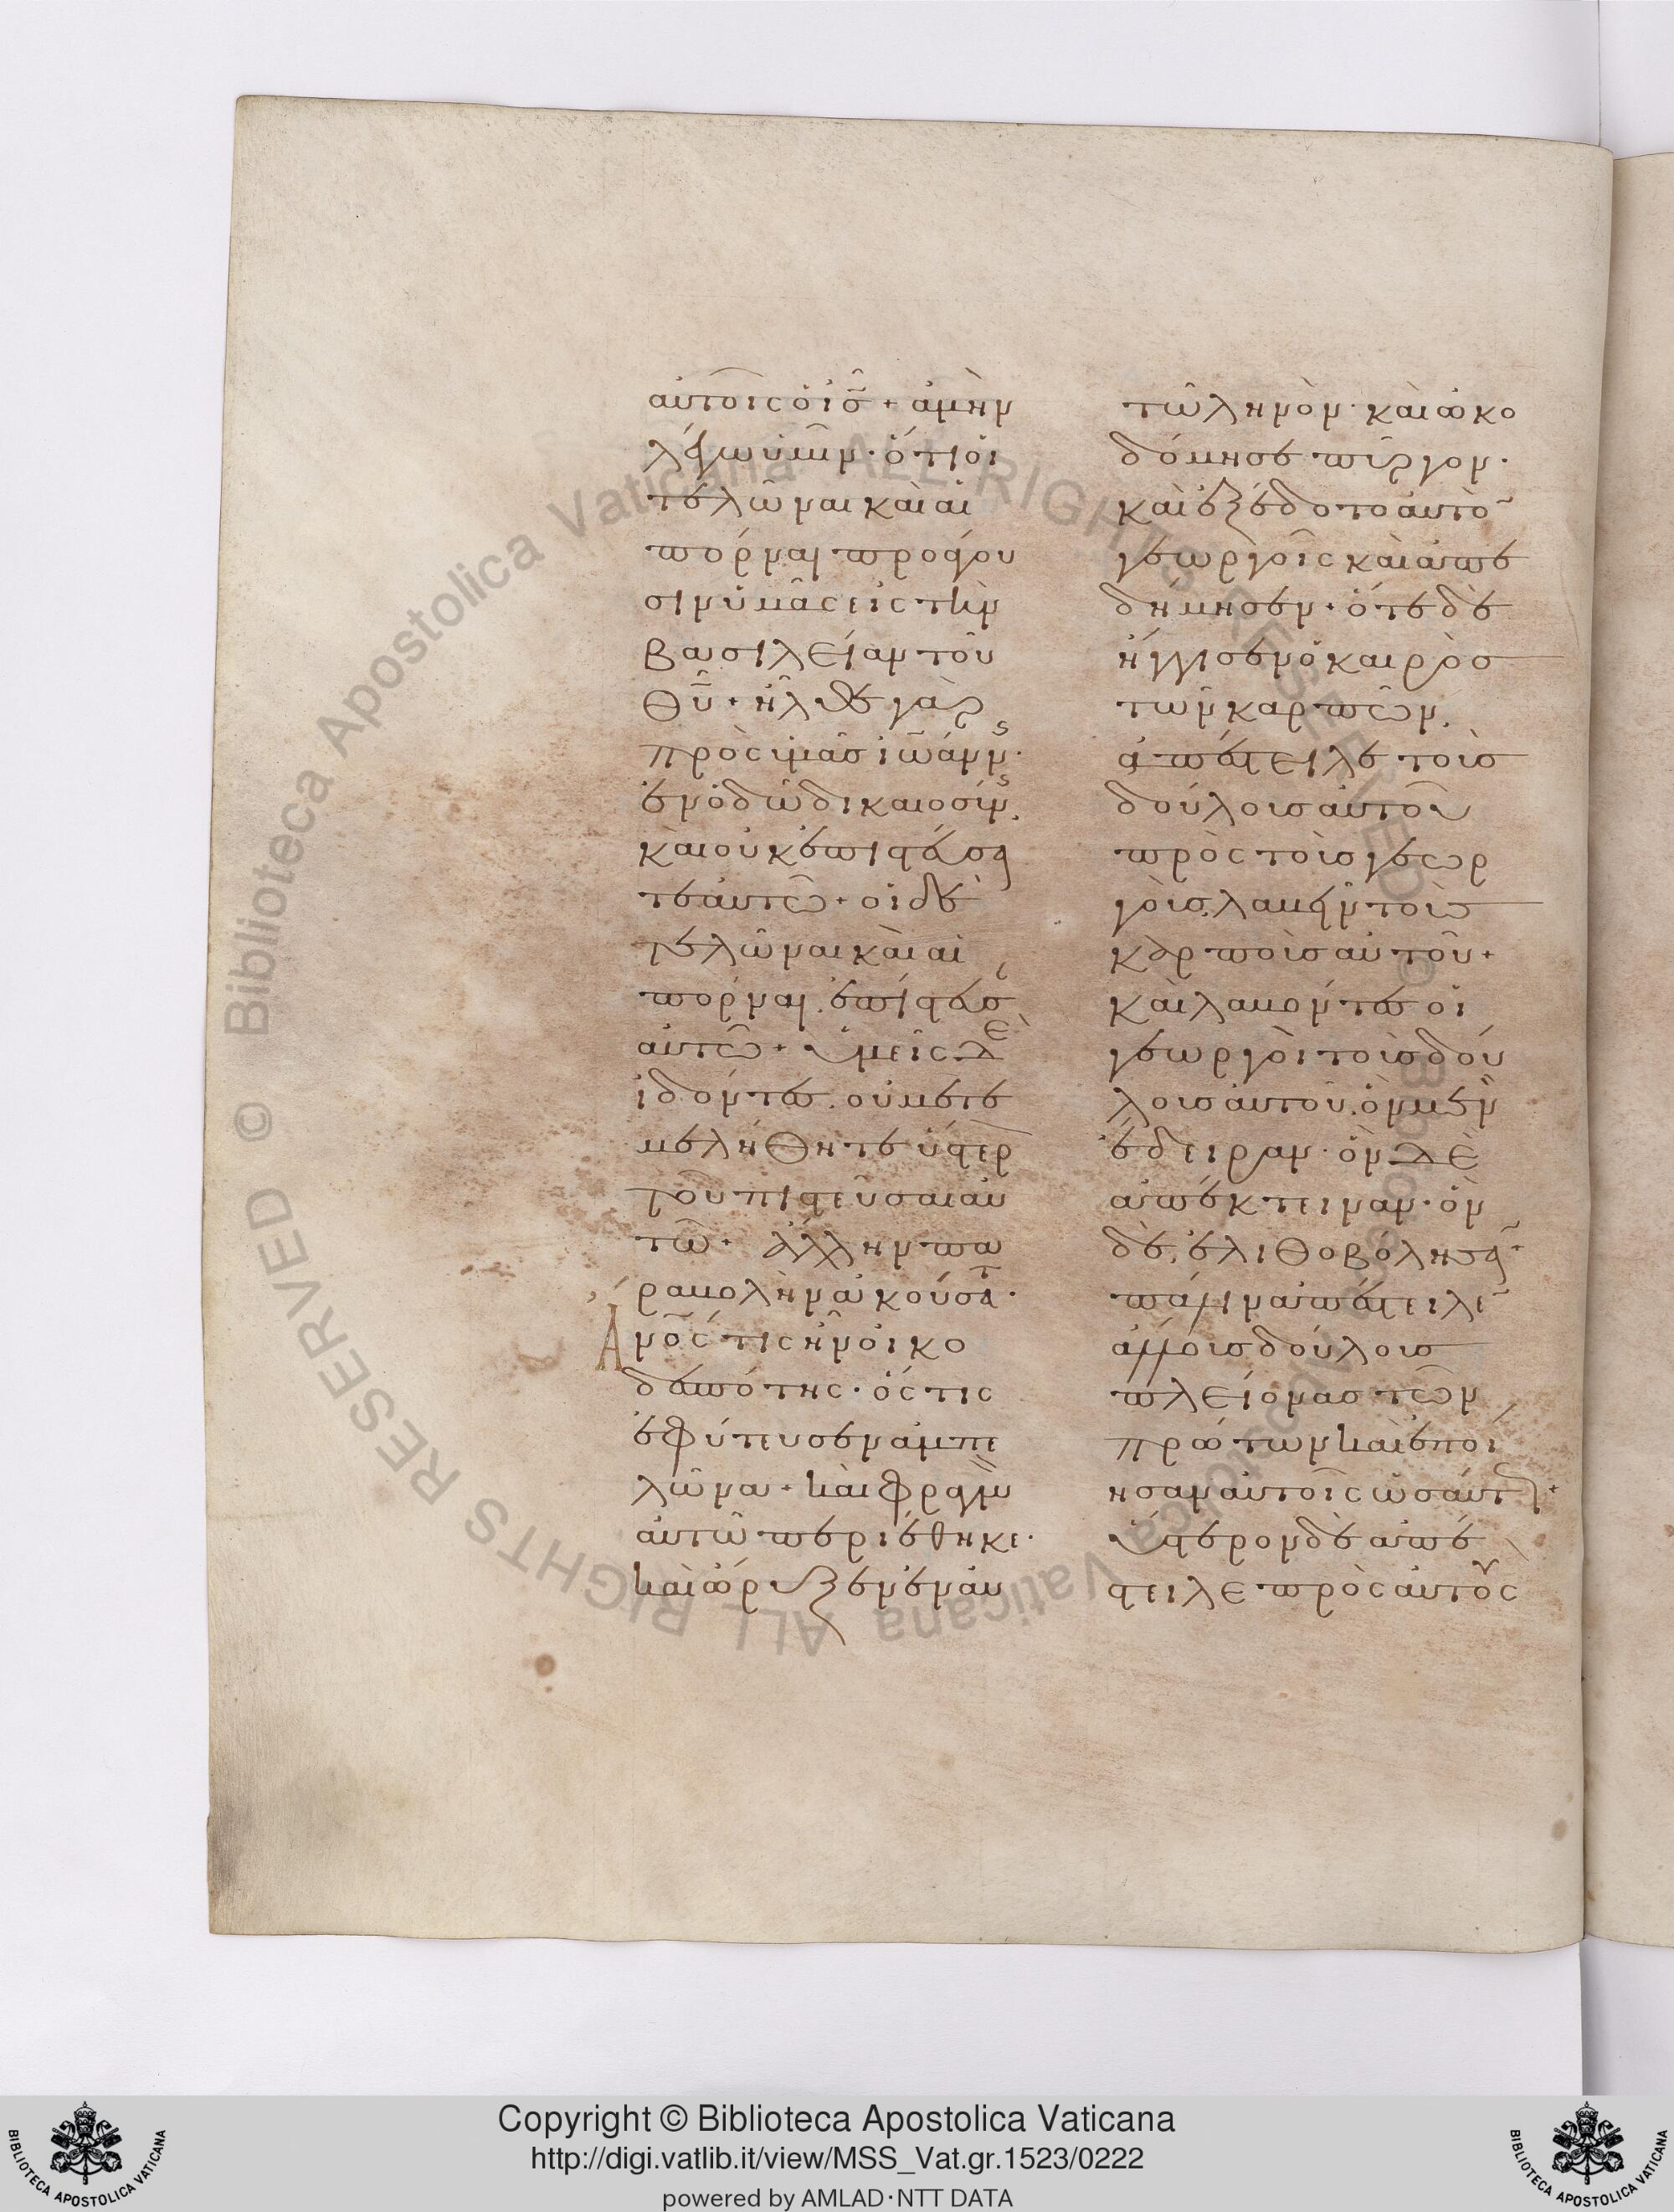 αὐτοῖς ὁ ις̅ + ἀμὴν
λέγω ὑμῖν · ὅτι οἱ
τελῶναι καὶ αἱ
πόρναι προάγου
σιν ὑμᾶς εἰς τὴν
βασιλείαν τοῦ
θυ̅ + ἦλθε γὰρ
πρὸς ὑμᾶς ἰωάνν^ς ·
ἐν ὁδῶ δικαιοσύν^ς,
καὶ οὐκ ἐπιστεύσα
τε αὐτῶ + οἱ δὲ
τελῶναι καὶ αἱ
πόρναι ἐπίστευσ
αὐτῶ + ὑμεῖς δὲ
ἰδόντες, οὐ μετε
μελήθητε ὕστερ
τοῦ πιστεῦσαι αὐ
τῶ + ἄλλην πα
ραβολὴν ἀκούσατ ·
Ἄνος τις ἦν οἰκο
δεσπότης · ὅς τις
ἐφύτευσεν ἀμπε
λῶνα + καὶ φραγμὸ
αὐτῶ περιέθηκε ·
καὶ ὤρυξεν ἐν αὐ
τῶ ληνὸν · καὶ ὠκο
δόμησε πύργον ·
καὶ ἐξέδοτο αὐτὸ
γεωργοῖς καὶ ἀπε
δήμησεν · ὅτε δὲ
ἤγγισεν ὁ καιρὸς
τῶν καρπῶν,
ἀπέστειλε τοὺς
δούλους αὐτοῦ
πρὸς τοὺς γεωρ
γοὺς, λαβεῖν τοὺς
καρποὺς αὐτοῦ +
καὶ λαβόντες οἱ
γεωργοὶ τοὺς δού
λους αὐτοῦ, ὃν μὲν
ἔδειραν · ὃν δὲ
ἀπέκτειναν · ὃν
δὲ, ἐλιθοβόλησα ·
πάλιν ἀπέστειλε
ἄλλους δούλους
πλείονας τῶν
πρώτων καὶ ἐποί
ησαν αὐτοῖς ὡσαύτ +
ὕστερον δὲ ἀπέ
στειλε πρὸς αὐτοὺς
Copyright © Biblioteca Apostolica Vaticana
http://digi.vatlib.it/view/MSS_Vat.gr.1523/0222
powered by AMLAD·NTT DATA
BIBLIOTECA APOSTOLICA VATICANA
BIBLIOTECA APOSTOLICA VATICANA
© Biblioteca Apostolica Vaticana ALL RIGHTS RESERVED © Biblioteca Apostolica Vaticana ALL RIGHTS RESERVED